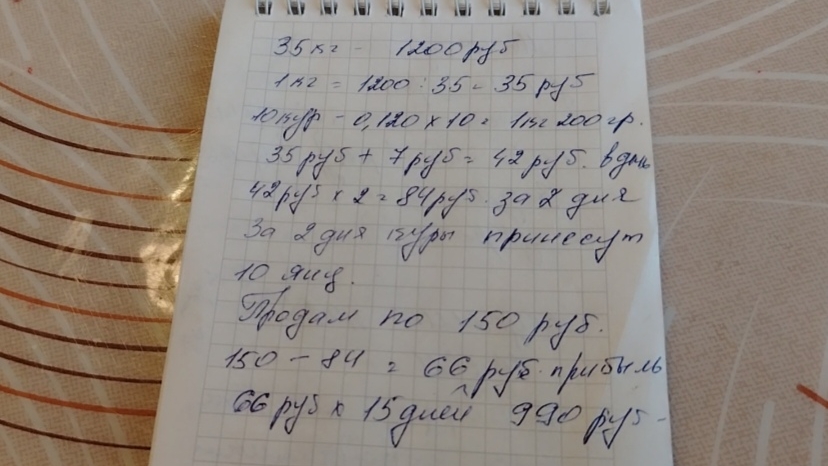 35кг - 1200руб
1кг = 1200:35= 35руб
10кур - 0,120х10= 1кг200гр.
35руб + 7руб= 42руб. в день
42руб х 2=84руб. за 2 дня
За 2 дня куры принесут
10 яиц.
Продам по 150 руб.
150 - 84 = 66 руб. прибыль
66 руб х 15дней 990 руб-